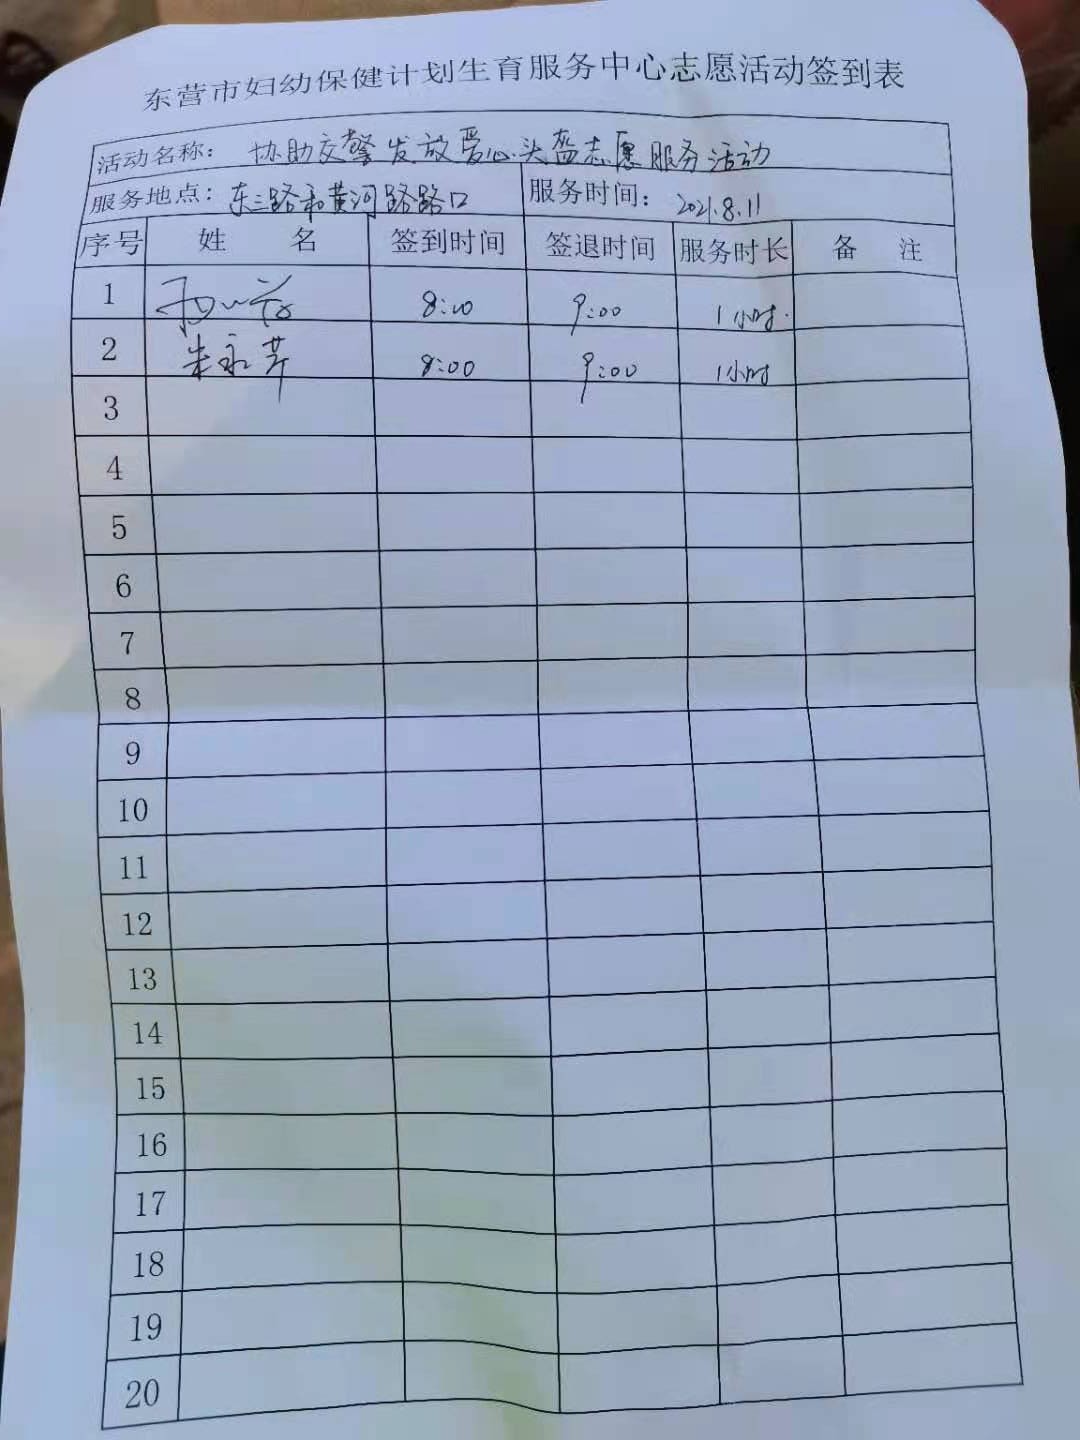 东营市妇幼保健计划生育服务中心志愿活动签到表
活动名称： 协助交警发放爱心头盔志愿服务活动
服务地点：东三路和黄河路路口 服务时间： 2021.8.11
序号 姓 名 签到时间 签退时间 服务时长 备 注
1 8:00 9:00 1小时.
2 朱永芹 8:00 9:00 1小时
3
4
5
6
7
8
9
10
11
12
13
14
15
16
17
18
19
20